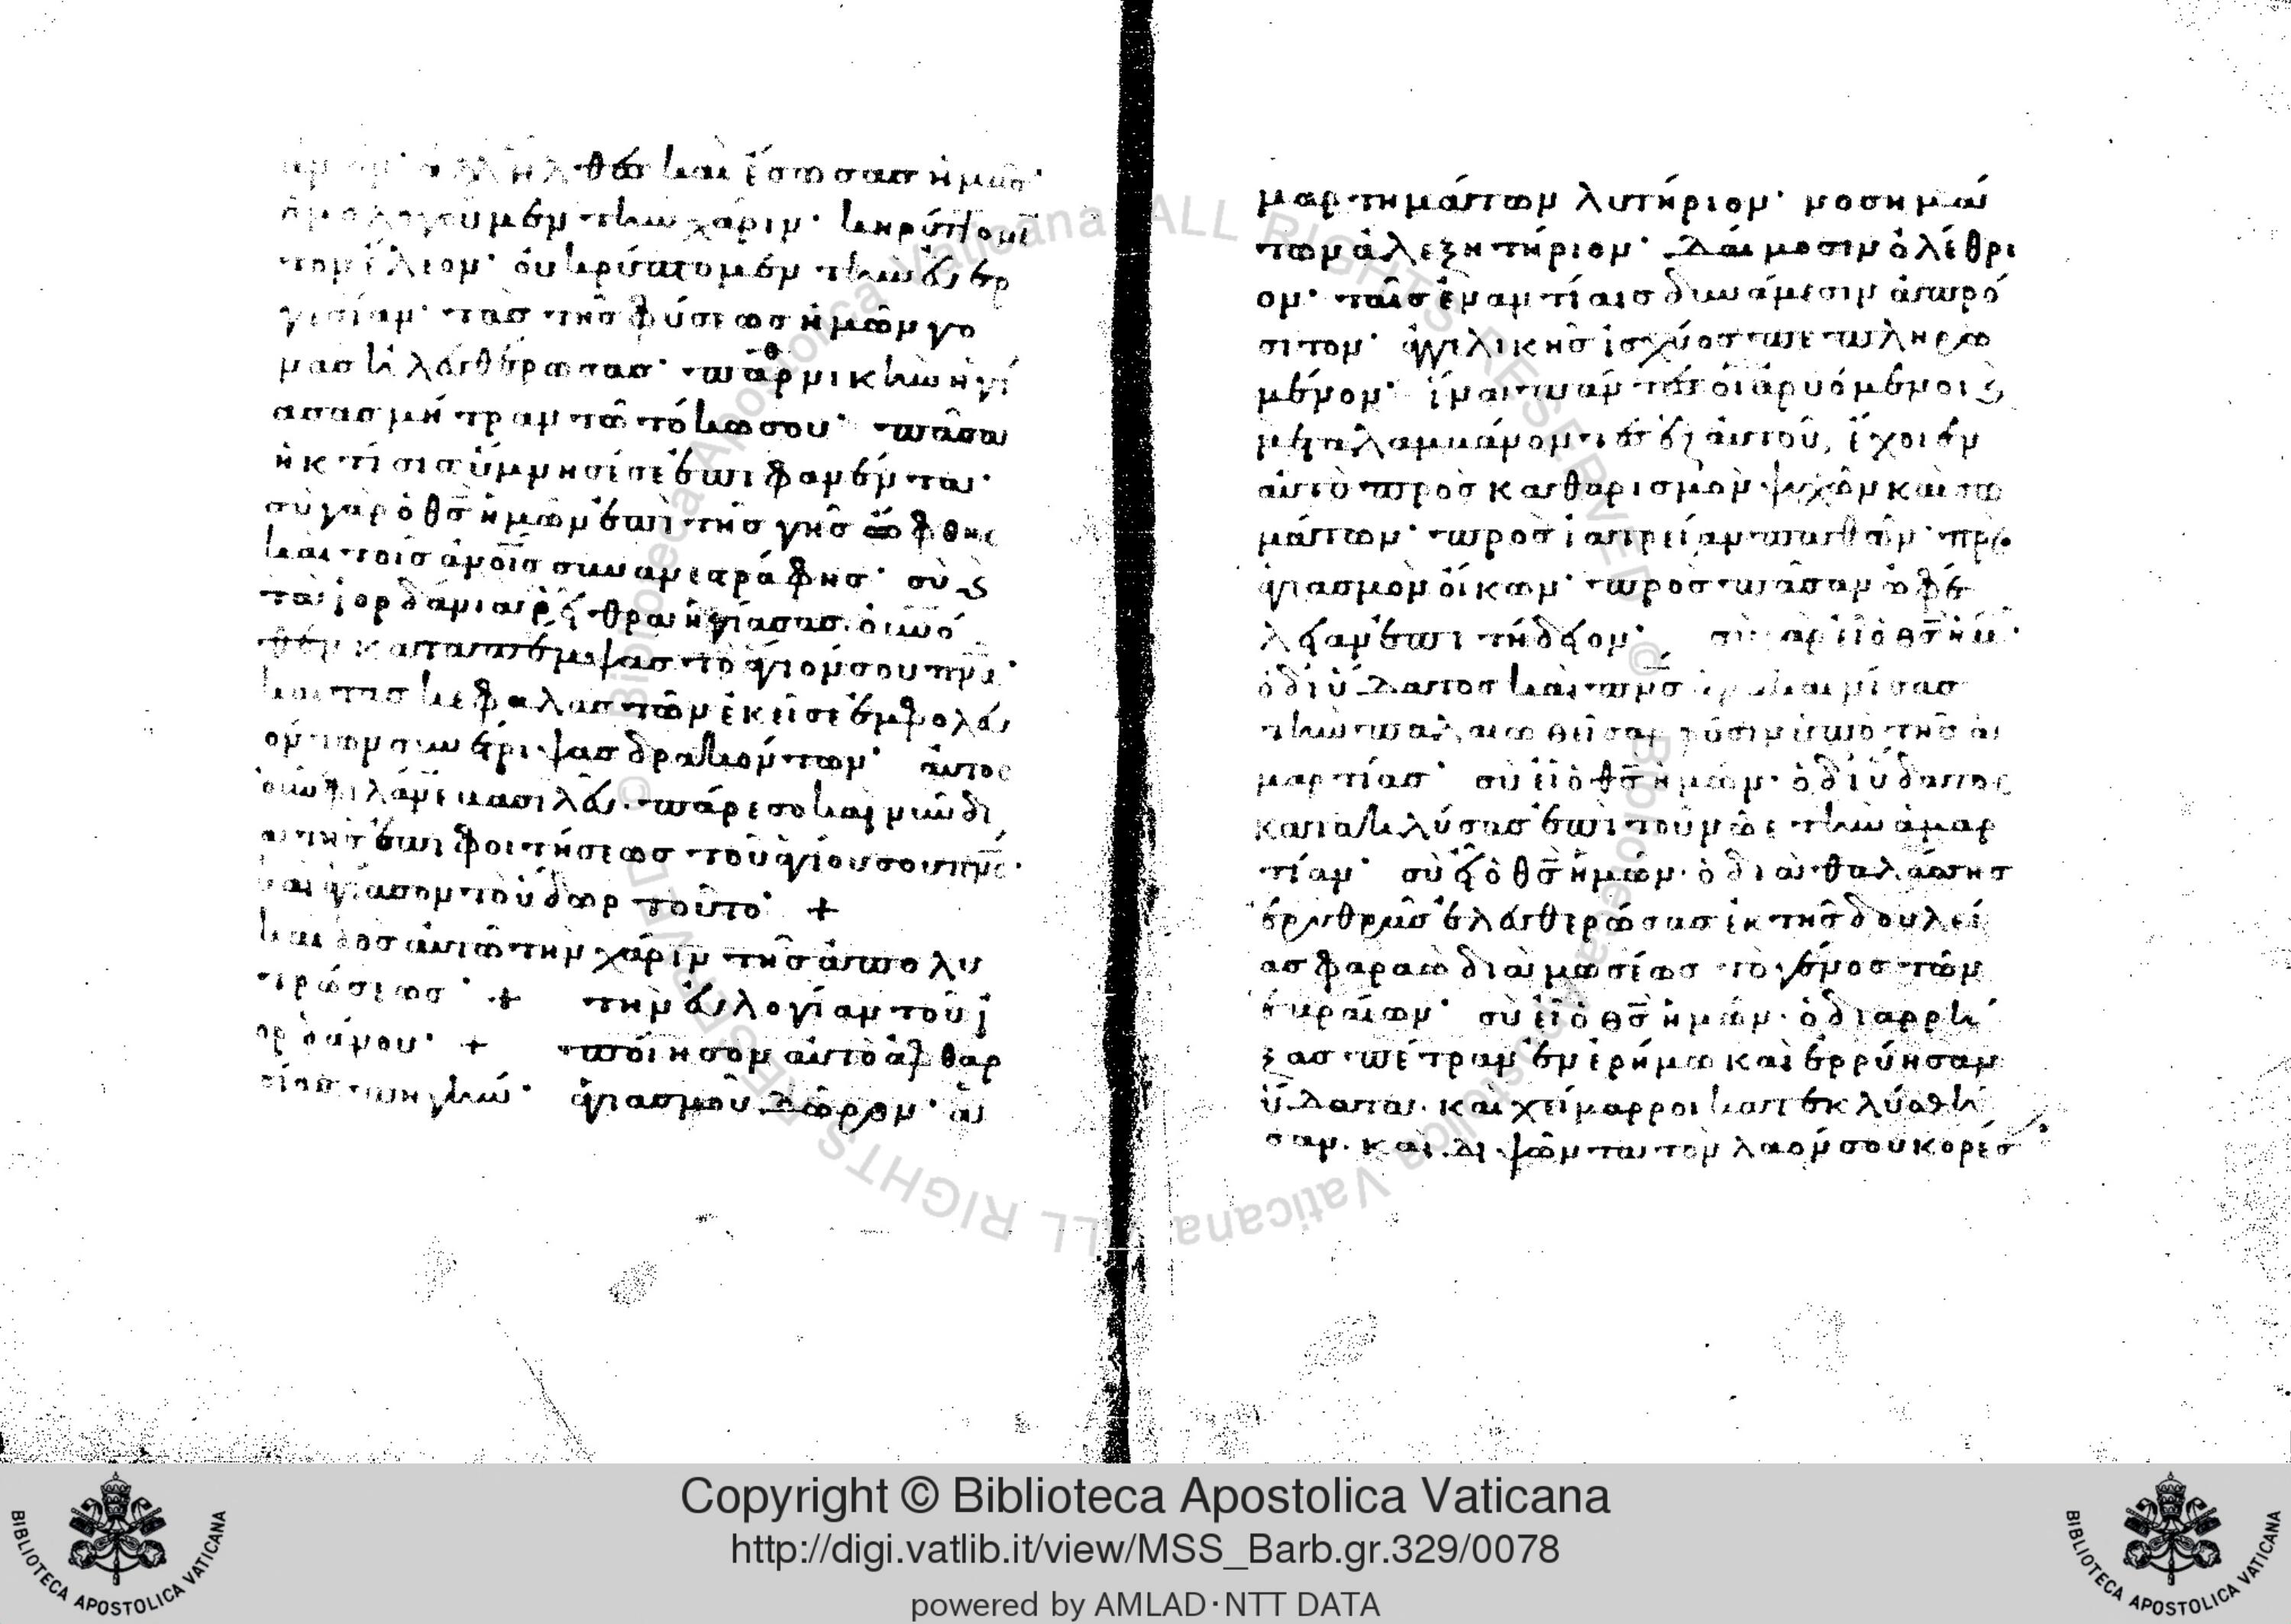 ἀλλ' ἦλθες καὶ ἔσωσας ἡμᾶς·
ὁμολογοῦμεν τὴν χάριν· κηρύττομ̅
τὸν ἔλεον· οὐ κρύπτομεν τὴν εὐερ
γεσίαν· τὰς τῆς φύσεως ἡμῶν γο
νὰς ἠλευθέρωσας· παρθενικὴν ἡγί
ασας μήτραν τῶ τόκω σου· πᾶσα
ἡ κτίσις ὕμνησέ σε ἐπιφανέντα·
σὺ γὰρ ὁ θ̅ς̅ ἡμῶν ἐπὶ τῆς γῆς ὤφθης
καὶ τοῖς ἀνοις συνανεστράφης· σὺ καὶ
τὰ ἰορδάνια ῥεῖθρα ἡγίασας. οὐνό
θεν καταπέμψας τὸ ἅγιόν σου πνα·
καὶ τὰς κεφαλὰς τῶν ἐκεῖσε ἐμφολευ
όντων συνέτριψας δρακόντων· αὐτὸς
οὖν φιλάνε βασιλεῦ. πάρεσο καὶ νῦν δι
ὰ τῆς ἐπιφοιτήσεως τοῦ ἁγίου σου πνς·
καὶ ἁγίασον τὸ ὕδωρ τοῦτο· +
καὶ δὸς αὐτῶ τὴν χάριν τῆς ἀπολυ
τρώσεως· + τὴν εὐλογίαν τοῦ ἰ
ορδάνου· + ποίησον αὐτὸ ἀφθαρ
σίας πηγήν· ἁγιασμοῦ δῶρον· ἁ
μαρτημάτων λυτήριον· νοσημά
των ἀλεξητήριον· δαίμοσιν ὀλέθρι
ον· ταῖς ἐναντίαις δυνάμεσιν ἀπρό
σιτον· ἀγγελικῆς ἰσχύος πεπληρω
μένον· ἵνα πάντες οἱ ἀρυόμενοι καὶ
μεταλαμβάνοντες ἐξ αὐτοῦ, ἔχοιεν
αὐτὸ πρὸς καθαρισμὸν ψυχῶν καὶ σω
μάτων· πρὸς ἰατρείαν παθῶν· πρὸς
ἁγιασμὸν οἴκων· πρὸς πᾶσαν ὠφέ
λειαν ἐπιτήδειον· σὺ γὰρ εἶ ὁ θ̅ς̅ ἡμ·
ὁ δι' ὕδατος καὶ πνς ἀνακαινίσας
τὴν παλαιωθεῖσαν φύσιν ὑπὸ τῆς ἁ
μαρτίας· σὺ εἶ ὁ θ̅ς̅ ἡμῶν· ὁ δι' ὕδατος
κατακλύσας ἐπὶ τοῦ νῶε τὴν ἁμαρ
τίαν· σὺ εἶ ὁ θ̅ς̅ ἡμῶν· ὁ διὰ θαλάσσης
ἐρυθρᾶς ἐλευθερώσας ἐκ τῆς δουλεί
ας φαραὼ διὰ μωσέως τὸ γένος τῶν
ἑβραίων· σὺ εἶ ὁ θ̅ς̅ ἡμῶν· ὁ διαρρή
ξας πέτραν ἐν ἐρήμω καὶ ἐρρύησαν
ὕδατα. καὶ χείμαρροι κατεκλύσθη
σαν. καὶ διψῶντα τὸν λαόν σου κορέσ
Copyright © Biblioteca Apostolica Vaticana
http://digi.vatlib.it/view/MSS_Barb.gr.329/0078
powered by AMLAD·NTT DATA
BIBLIOTECA APOSTOLICA VATICANA
BIBLIOTECA APOSTOLICA VATICANA